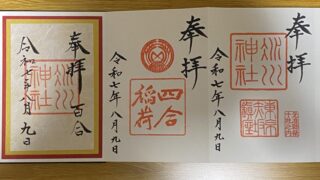 奉拝
氷川
神社
令和七年八月九日
奉拝
四合
稲荷
令和七年八月九日
奉拝
氷川
神社
令和七年八月九日
百合